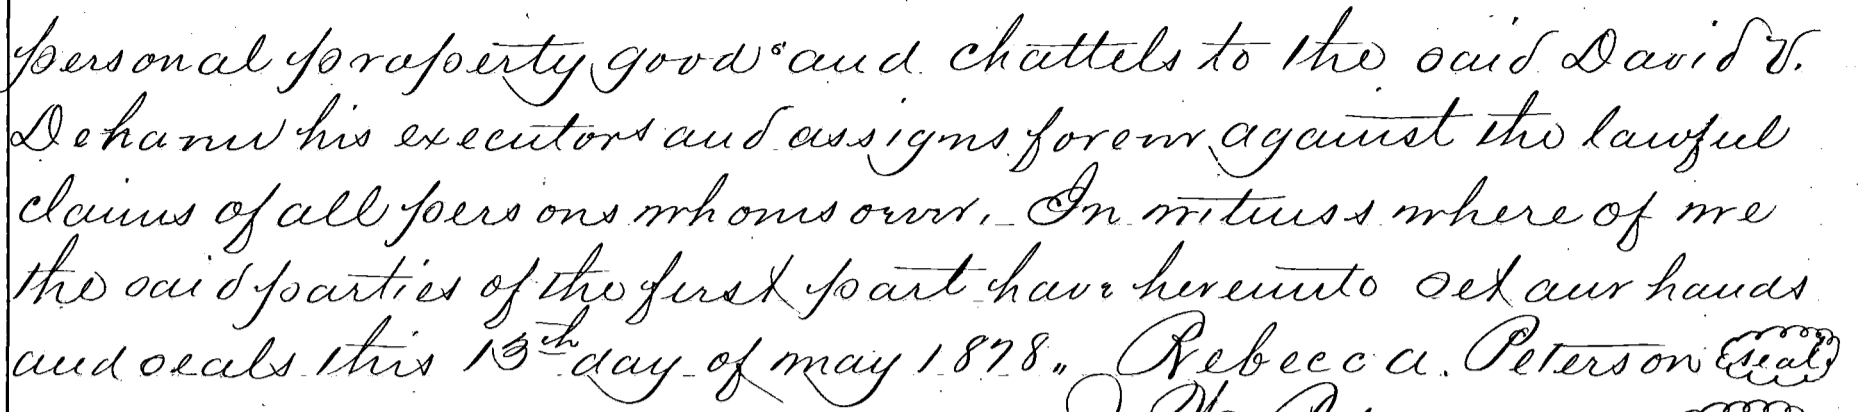 personal property goods and chattels to the said David V.
Dehanu his executors and assigns forever against the lawful
claims of all persons whomsoever. In witness where of we
the said parties of the first part have hereunto set our hands
and seals this 13th day of may 1878. Rebecca. Peterson seal